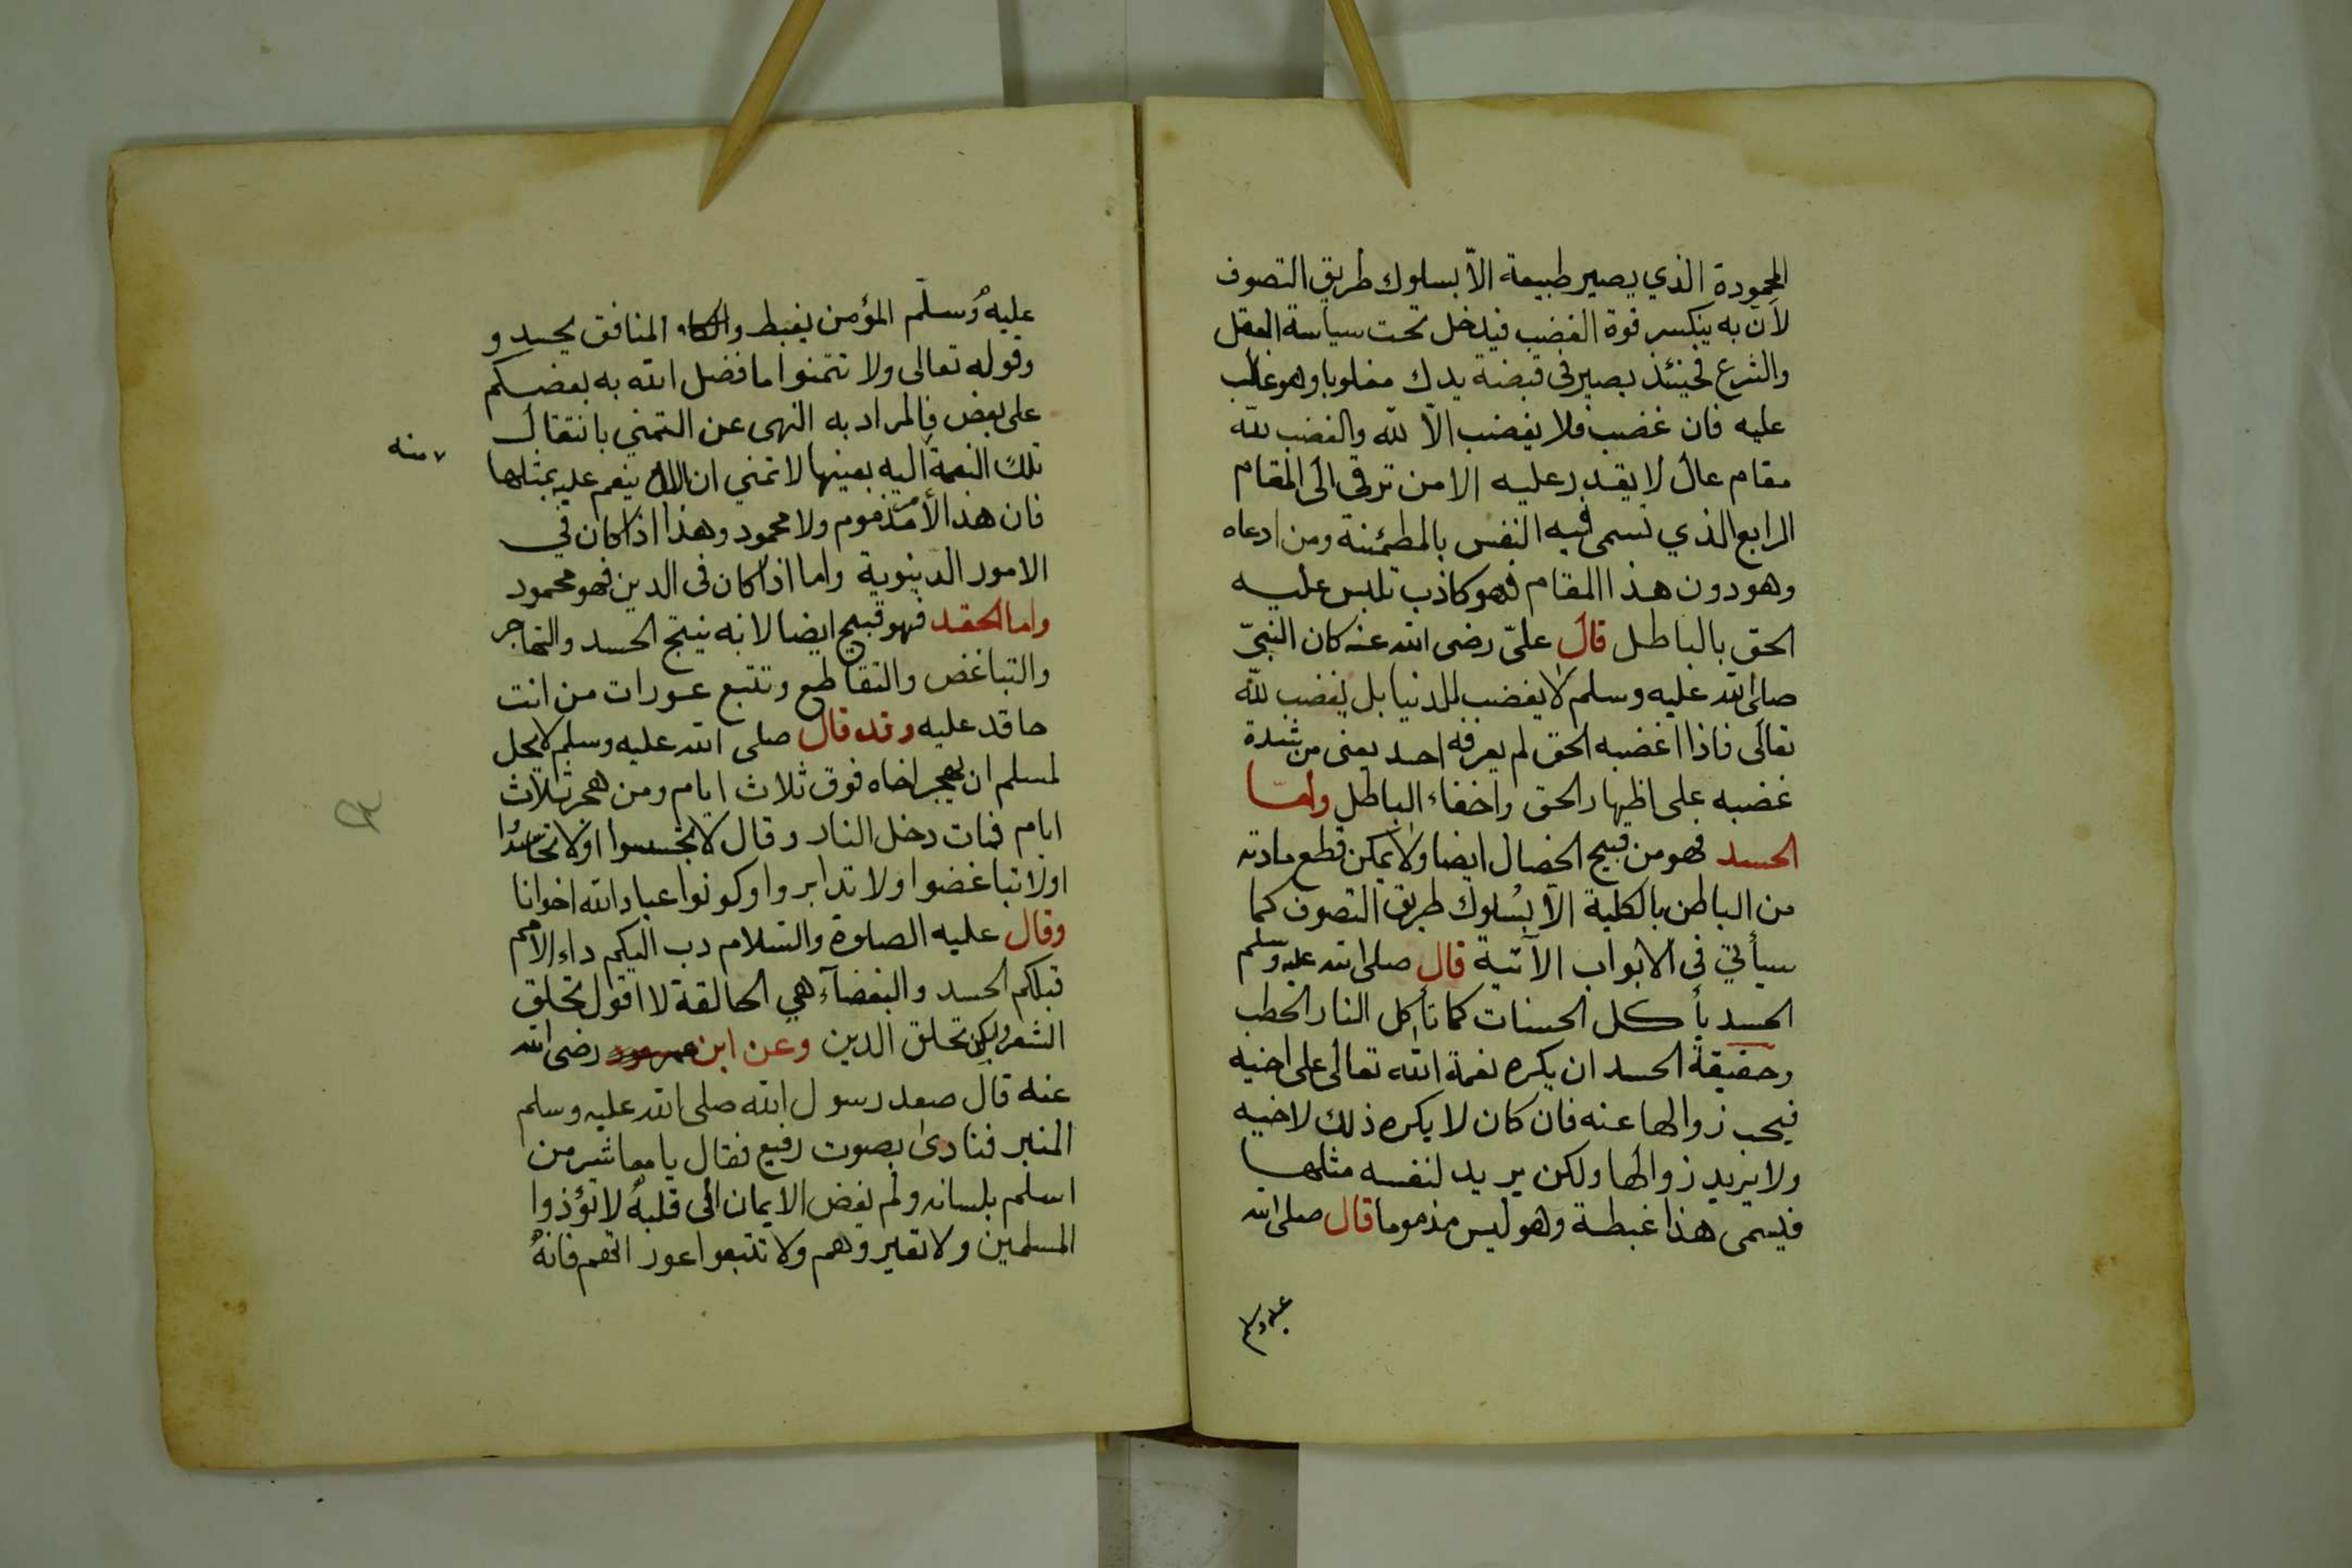 المحمودة الذي يصير طبيعة الّا بسلوك طريق التصوف
لأن به ينكسر قوة الغضب فيدخل تحت سياسة العقل
والشرع فحينئذ يصير في قبضة يدك مغلوبا وهو غالب
عليه فان غضب فلا يغضب الّا للّه والغضب للّه
مقام عال لا يقدر عليه الا من ترقى الى المقام
الرابع الذي تسمى فيه النفس بالمطمئنة ومن ادعاه
وهو دون هذا المقام فهو كاذب تلبس عليه
الحق بالباطل قال عليّ رضى الله عنه كان النبيّ
صلى الله عليه وسلم لا يغضب للدنيا بل يغضب للّه
تعالى فاذا اغضبه الحق لم يعرفه احد يعنى من شدة
غضبه على اظهار الحق واخفاء الباطل وامّا
الحسد فهو من قبيح الخصال ايضا ولا يمكن قطع مادته
من الباطن بالكلية الّا بسُلوك طريق التصوف كما
سيأتي في الابواب الآتية قال صلى الله عليه وسلم
الحسد يأكل الحسنات كما تأكل النار الحطب
وحقيقة الحسد ان يكره نعمة الله تعالى على اخيه
فيحب زوالها عنه فان كان لا يكره ذلك لاخيه
ولا يريد زوالها ولكن يريد لنفسه مثلها
فيسمى هذا غبطة وهو ليس مذموما قال صلى الله
عليه وسلم
عليه وسلّم المؤمن يغبط المنافق يحسد و
وقوله تعالى ولا تتمنوا ما فضل الله به بعضكم
على بعض فالمراد به النهى عن التمني بانتقال
منه
تلك النعمة اليه بعينها لا تمني ان ينعم عليه بمثلها
فان هذا الأمر مذموم ولا محمود وهذا اذا كان في
الامور الدنيوية واما اذا كان فى الدين فهو محمود
واما الحقد فهو قبيح ايضا لانه ينتج الحسد والتهاجر
والتباغض والتقاطع وتتبع عورات من انت
حاقد عليه وقد قال صلى الله عليه وسلم لا يحل
لمسلم ان يهجر اخاه فوق ثلاث ايام ومن هجر ثلاث
ايام فمات دخل النار وقال لا تجسسوا اولا تحاسدُوا
اولا تباغضوا ولا تدابروا وكونوا عباد الله اخوانا
وقال عليه الصلوة والسّلام دب اليكم داء الامم
قبلكم الحسد والبغضآء هي الحالقة لا اقول تحلق
الشعر ولكن تحلق الدين وعن ابن رضى الله
عنه قال صعد رسول الله صلى الله عليه وسلم
المنبر فنادى بصوت رفيع فقال يا معاشر من
اسلم بلسانه ولم يفض الايمان الى قلبهُ لا تؤذوا
المسلمين ولا تعيروهم ولا تتبعوا عوراتهم فانهُ